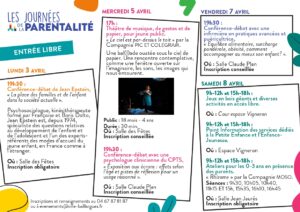 LES JOURNÉES
DE LA
PARENTALITÉ
ENTRÉE LIBRE
LUNDI 3 AVRIL
19h30 :
Conférence-débat de Jean Epstein,
« La place des parents et de l'enfant
dans la société actuelle ».
Psychosociologue, kinésithérapeute
formé par Françoise et Boris Dolto,
Jean Epstein est, depuis 1974,
spécialiste des questions relatives
au développement de l'enfant et
de l'adolescent et l'un des experts
référents des modes d'accueil du
jeune enfant, en France comme à
l'étranger.
Où : Salle des Fêtes
Inscription obligatoire
MERCREDI 5 AVRIL
17h :
Théâtre de musique, de gestes et de
papier, pour jeune public.
« Le ciel est par-dessus le toit » par la
Compagnie PIC ET COLEGRAM.
Une bal(l)ade oustée sous le ciel
de papier. Une rencontre contemplative,
comme une fenêtre ouverte sur
l'imaginaire, les sons, les images qui
nous entourent.
Public : 18 mois - 4 ans
Durée : 30 min.
Où : Salle des Fêtes
Inscription conseillée
19h30 :
Conférence-débat avec une
psychologue clinicienne du CPTS,
« Exposition aux écrans : effets selon
l'âge et pistes de réflexion pour un
usage raisonné ».
Où : Salle Claude Plan
Inscription conseillée
VENDREDI 7 AVRIL
19h30 :
Conférence-débat avec une
infirmière en pratiques avancées et
psychologue,
« Équilibre alimentaire, surcharge
pondérale, obésité, comment
accompagner au mieux son enfant ? ».
Où : Salle Claude Plan
Inscription conseillée
SAMEDI 8 AVRIL
9h-12h et 15h-18h :
Jeux en bois géants et diverses
activités en accès libre.
Où : Cour espace Vigneron
9h-12h et 15h-18h :
Pleine information des services dédiés
à la Petite Enfance et l'Enfance-
Jeunesse.
Où : Espace Vigneron
9h-12h et 15h-18h :
Ateliers pour les 0-3 ans en présence
des parents.
« Rêverie » par la Compagnie MOSO.
Séances : 9h30, 10h15, 10h40,
11h15 ET 15h, 15h35, 16h10, 16h45
Où : Salle Jean Marie
Inscription conseillée
Inscriptions et renseignements au 04 67 87 81 87